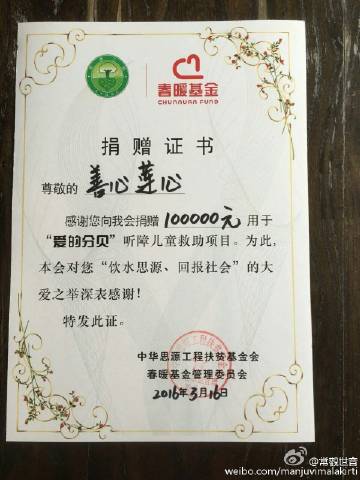 春暖基金
CHUNNUAN FUND
捐赠证书
尊敬的 善心莲心
感谢您向我会捐赠 100000元 用于
“爱的分贝”听障儿童救助项目。为此，
本会对您“饮水思源、回报社会”的大
爱之举深表感谢！
特发此证。
中华思源工程扶贫基金会
春暖基金管理委员会
2016年3月16日
weibo.com/manjuvimalakirti